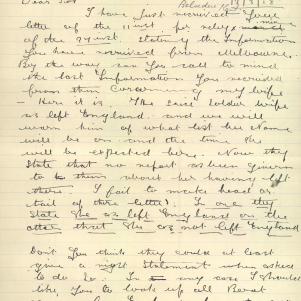 Dear Sir
Beludu 19/3/18
I have just received your
letter of the 11 inst
of the 7 inst stating the information
you have received from Melbourne.
By the way can you call to mind
the last information you received
from them concerning my wife
- Here it is. "The said soldier wife
as left England and we will
warn him of what her name
will be on and the time she
will be expected here. Now they
state that no report as been given
to them about her having left
there I fail to make head or
tail of these letters. In one they
state she as left England on the
other that she as not left England
Don't you think they could at least
give a right statement when asked
to do so. In my case I should
like you to look up all